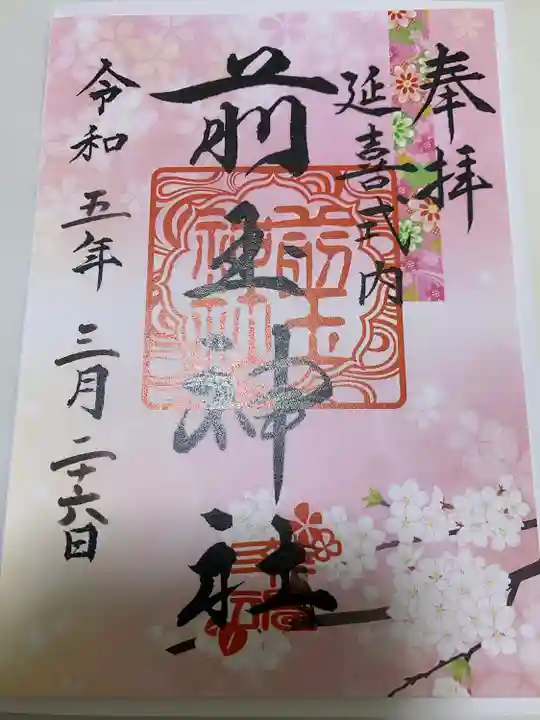 奉拝
延喜式内
前玉神社
令和五年三月二十六日
前玉
神社